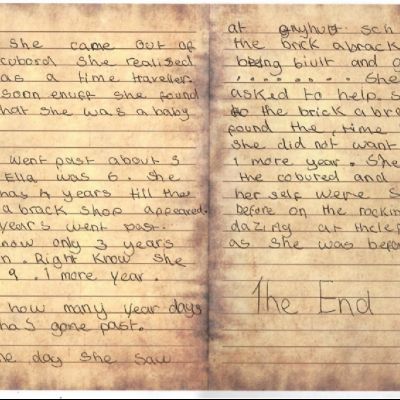 she came out of
cubord she realised
as a time traveller.
soon enuff she found
that she was a baby
went past about 3
Ella was 6. she
has 4 years till the
abrack shop appeared.
year's went past.
now only 3 years
n. Right know she
9. 1 more year.
how many year days
has gone past.
ne day she saw
at sch
the brick abrack
being biult and a
. . . . . . . . She
asked to help. s
to the brick abra
found the time
she did not want
1 more year. She
the cobured and
her self were s
before on the rockin
dazing at the
as she was befor
The End